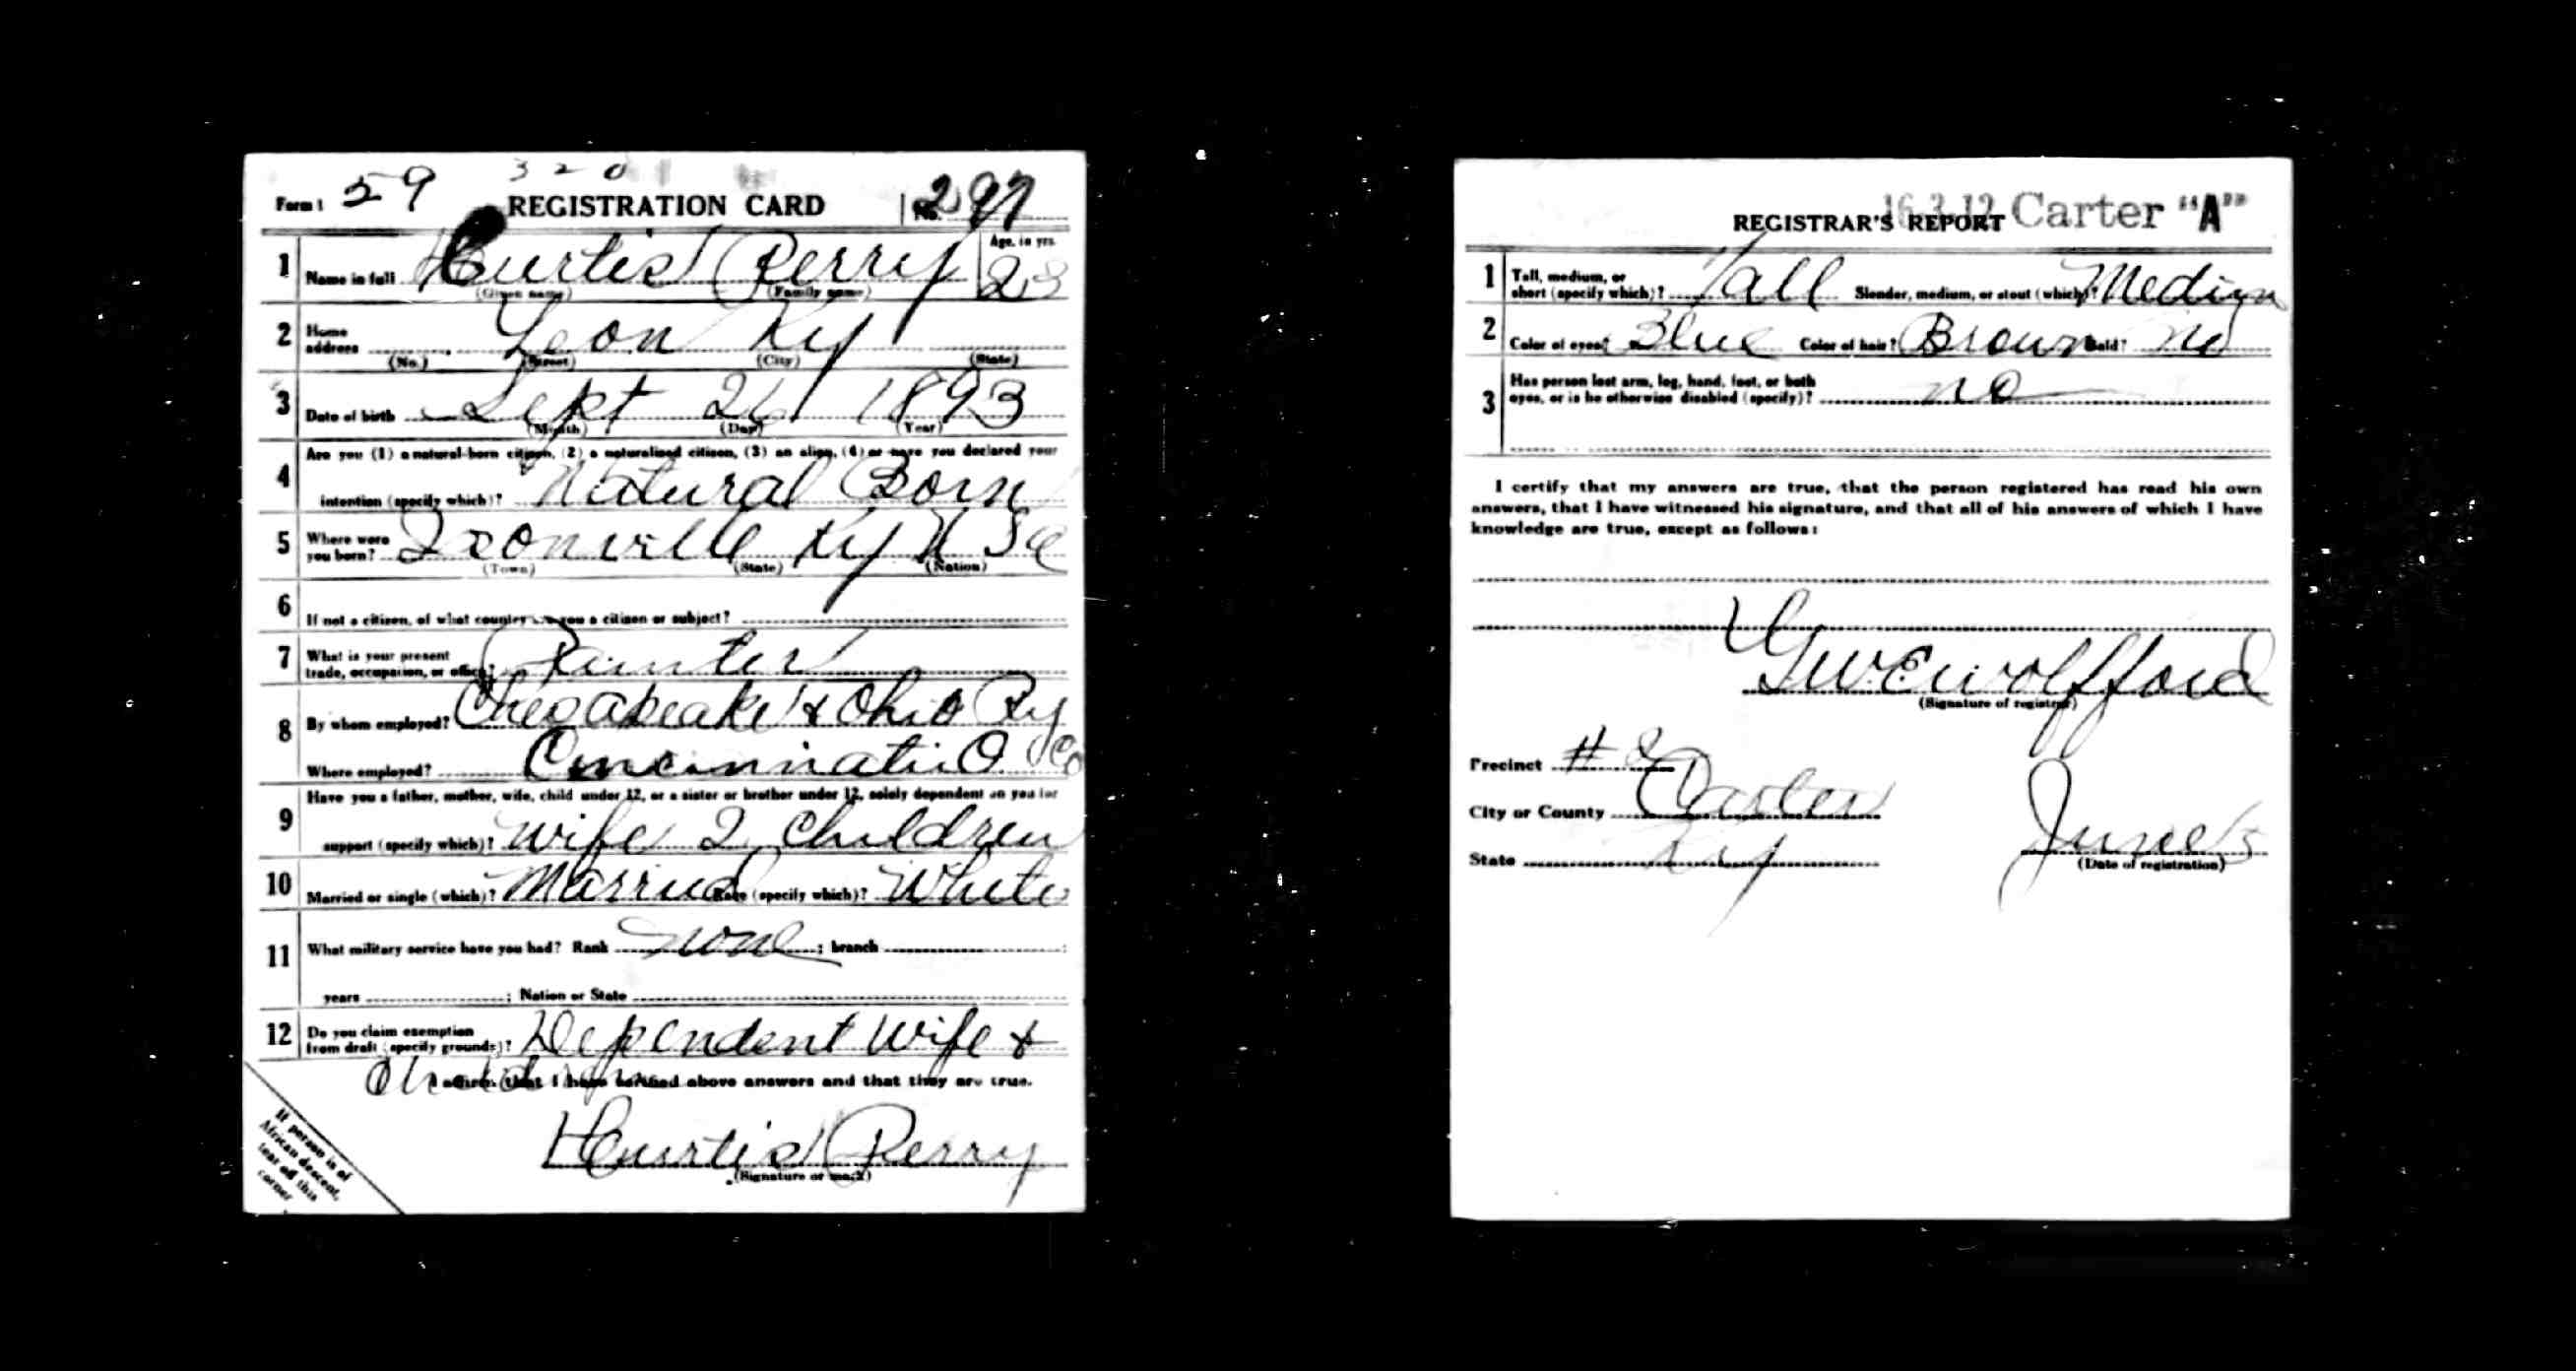 Form 1 59 320 REGISTRATION CARD No. 297
1 Name in full HCurtis Perry Age, in yrs. 23
(Given name) (Family name)
2 Home address Leon Ky
(No.) (Street) (City) (State)
3 Date of birth Sept 26 1893
(Month) (Day) (Year)
4 Are you (1) a natural-born citizen, (2) a naturalized citizen, (3) an alien, (4) or have you declared your
intention (specify which)? Natural Born
5 Where were you born? Ironville Ky USA
(Town) (State) (Nation)
6 If not a citizen, of what country are you a citizen or subject?
7 What is your present trade, occupation, or office? Painter
8 By whom employed? Chesapeake & Ohio Ry Co
Where employed? Cincinnati O
9 Have you a father, mother, wife, child under 12, or a sister or brother under 12, solely dependent on you for
support (specify which)? Wife 2 Children
10 Married or single (which)? Married Race (specify which)? White
11 What military service have you had? Rank None ; branch ;
years ; Nation or State
12 Do you claim exemption from draft (specify grounds)? Dependent Wife &
Children
I affirm that I have verified above answers and that they are true.
HCurtis Perry
(Signature or mark)
If person is of
African descent,
tear off this
corner
16-3-12 Carter "A"
REGISTRAR'S REPORT
1 Tall, medium, or short (specify which)? Tall Slender, medium, or stout (which)? Medium
2 Color of eyes? Blue Color of hair? Brown Bald? No
3 Has person lost arm, leg, hand, foot, or both
eyes, or is he otherwise disabled (specify)? no
I certify that my answers are true, that the person registered has read his own
answers, that I have witnessed his signature, and that all of his answers of which I have
knowledge are true, except as follows:
Wolfford
(Signature of registrar)
Precinct # 2
City or County Carter
State Ky
June 5
(Date of registration)